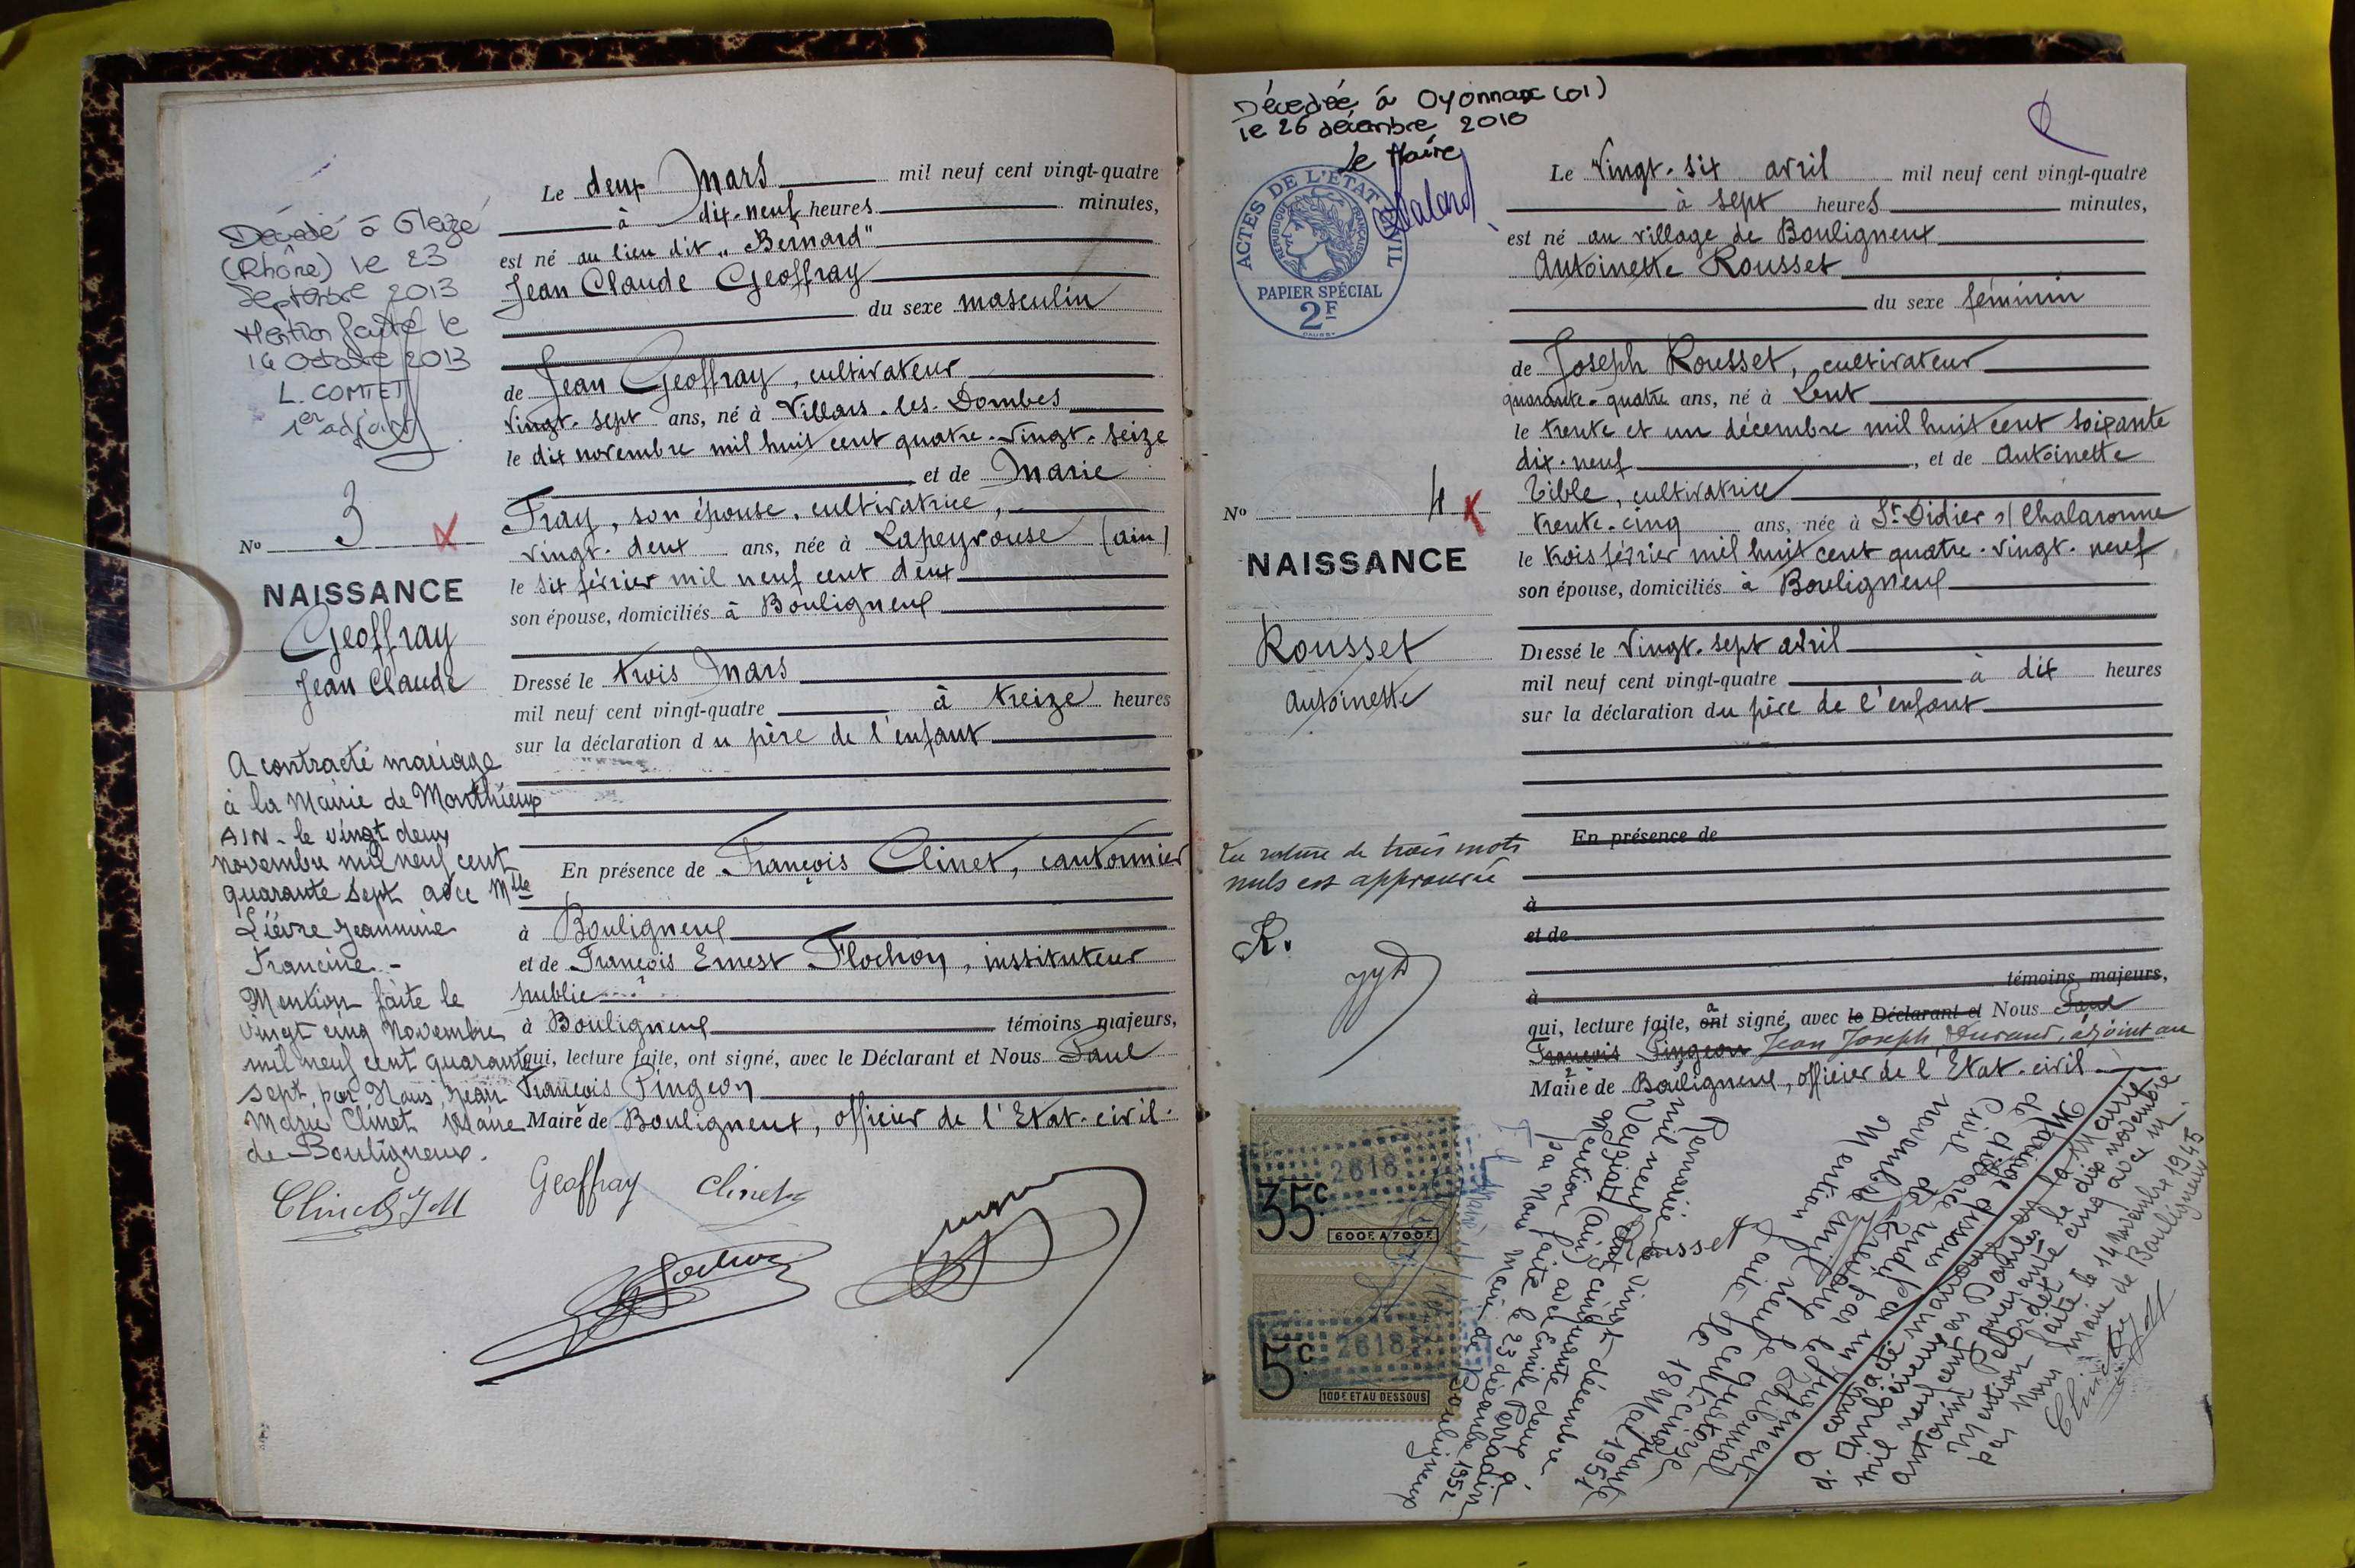 Décédé à Gleizé
(Rhône) le 23
Septembre 2013
Mention faite le
16 Octobre 2013
L. COMTET
1er adjoint
No 3
NAISSANCE
Geoffray
Jean Claude
A contracté mariage
à la Mairie de Monthieux
AIN - le vingt deux
novembre mil neuf cent
quarante sept avec Mlle
Lièvre Jeannine
Francine -
Mention faite le
vingt cinq Novembre
mil neuf cent quarante
sept, par Nous, Jean
Marie Clinet Maire
de Bouligneux.
Clinet JM
Le deux Mars mil neuf cent vingt-quatre
à dix-neuf heures minutes,
est né au lieu dit "Bernard"
Jean Claude Geoffray
du sexe masculin
de Jean Geoffray, cultivateur
vingt-sept ans, né à Villars-les-Dombes
le dix novembre mil huit cent quatre-vingt-seize
et de Marie
Fray, son épouse, cultivatrice,
vingt-deux ans, née à Lapeyrouse (ain)
le six février mil neuf cent deux
son épouse, domiciliés à Bouligneux
Dressé le trois Mars
mil neuf cent vingt-quatre à treize heures
sur la déclaration du père de l'enfant
En présence de François Clinet, cantonnier
à Bouligneux
et de François Ernest Flochon, instituteur
public
à Bouligneux témoins majeurs,
qui, lecture faite, ont signé, avec le Déclarant et Nous Paul
François Pingeon
Maire de Bouligneux, officier de l'Etat-civil.
Geoffray Clinet
Flochon
Décédée à Oyonnax (01)
le 26 décembre 2010
Le Maire
ACTES DE L'ÉTAT CIVIL
RÉPUBLIQUE FRANÇAISE
PAPIER SPÉCIAL
2F
No 4
NAISSANCE
Rousset
Antoinette
La rature de trois mots
nuls est approuvée
R.
Le Vingt-six avril mil neuf cent vingt-quatre
à sept heures minutes,
est né au village de Bouligneux
Antoinette Rousset
du sexe féminin
de Joseph Rousset, cultivateur
quarante-quatre ans, né à Lent
le trente et un décembre mil huit cent soixante
dix-neuf, et de Antoinette
Tible, cultivatrice
trente-cinq ans, née à St Didier s/ Chalaronne
le trois février mil huit cent quatre-vingt-neuf
son épouse, domiciliés à Bouligneux
Dressé le Vingt-sept avril
mil neuf cent vingt-quatre à dix heures
sur la déclaration du père de l'enfant
En présence de
à
et de
à témoins majeurs,
qui, lecture faite, ont signé, avec le Déclarant et Nous Paul
a
François Pingeon Jean Joseph Durand, adjoint au
Maire de Bouligneux, officier de l'Etat-civil
Rousset
2618
35c
600F A 700F
2618
5c
100F ET AU DESSOUS
Remariée le vingt décembre
mil neuf cent cinquante deux à
Veyziat (ain) avec Emile Perradin
Mention faite le 23 décembre 1952
par Nous Maire de Bouligneux
Mariage dissous
de divorce rendu par un jugement
civil de le Tribunal
novembre mil neuf cent cinquante
Mention faite le 18 Mai 1951
a contracté mariage à la Mairie
d'Ambérieux en Dombes le dix novembre
mil neuf cent quarante cinq avec M.
Antonin
Mention faite le 14 novembre 1945
par Nous Maire de Bouligneux
Clinet JM